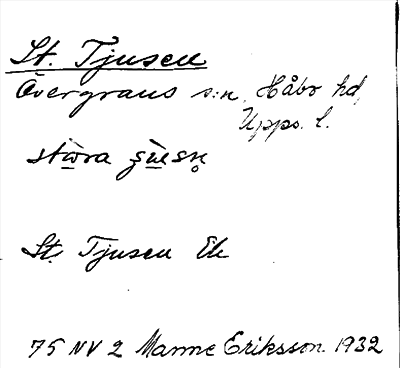 St. Tjusen
Övergrans s:n, Håbo hd,
Upps. l.
stω̲ra
St. Tjusen Ek
75 NV 2 Manne Eriksson 1932